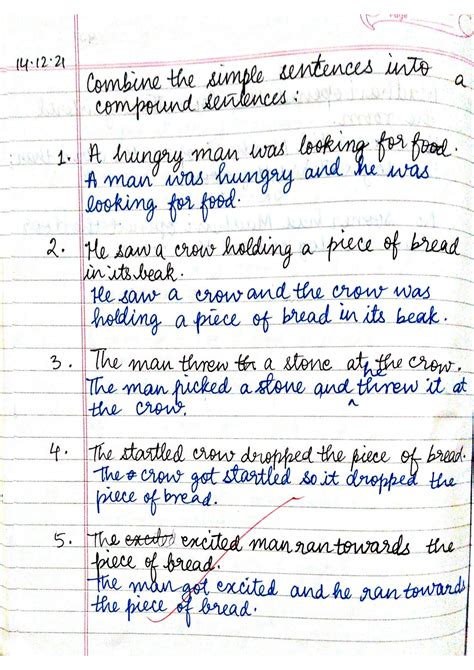 Page
14.12.21
Combine the simple sentences into a
compound sentences :
1. A hungry man was looking for food.
A man was hungry and he was
looking for food.
2. He saw a crow holding a piece of bread
in its beak.
He saw a crow and the crow was
holding a piece of bread in its beak.
3. The man threw a stone at the crow.
The man picked a stone and he threw it at
the crow.
4. The startled crow dropped the piece of bread.
The crow got startled so it dropped the
piece of bread.
5. The excited man ran towards the
piece of bread.
The man got excited and he ran towards
the piece of bread.